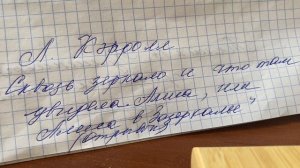 Л. Кэрролл
Сквозь зеркало и что там
увидела Алиса, или
Алиса в Зазеркалье
(отрывок)